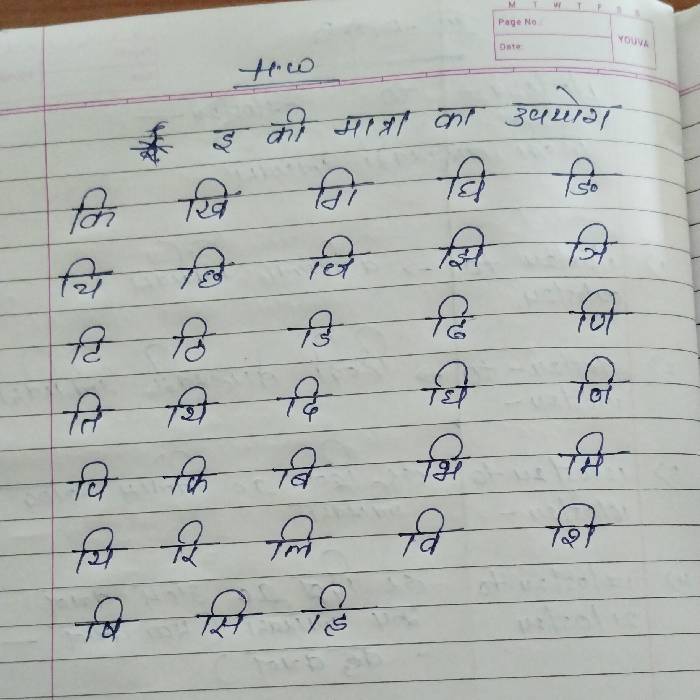 M T W T F S S
Page No.:
Date:
YOUVA
H.W
इ की मात्रा का उपयोग
कि खि गि घि ङि
चि छि जि झि ञि
टि ठि डि ढि णि
ति थि दि धि नि
पि फि बि भि मि
यि रि लि वि शि
षि सि हि